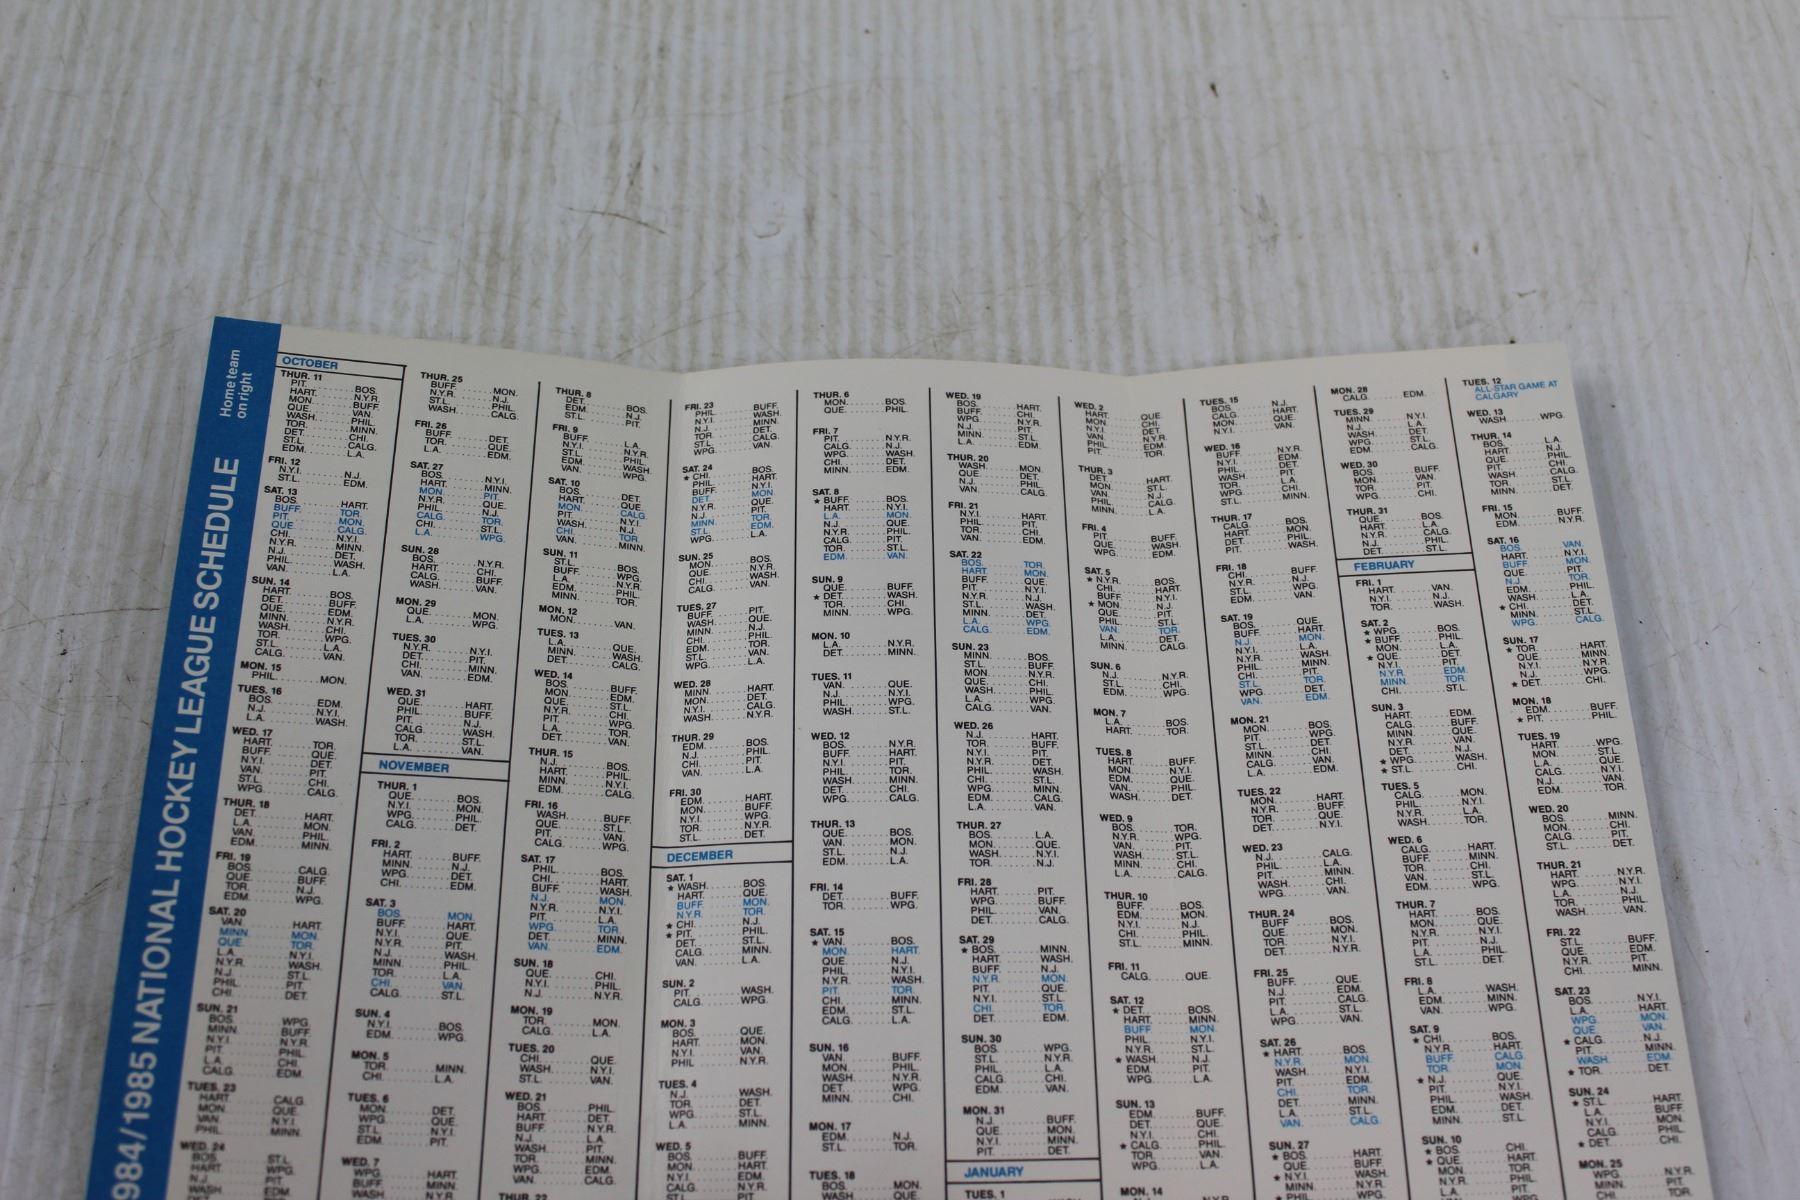 1984/1985 NATIONAL HOCKEY LEAGUE SCHEDULE
Home team
on right
OCTOBER
THUR. 11
PIT. BOS.
HART. N.Y.R.
MON. BUFF.
QUE. VAN.
WASH. PHIL.
TOR. MINN.
DET. CHI.
ST.L. CALG.
EDM. L.A.
FRI. 12
N.Y.I. N.J.
ST.L. EDM.
SAT. 13
BOS. HART.
BUFF. TOR.
PIT. MON.
QUE. CALG.
CHI. N.Y.I.
N.Y.R. MINN.
N.J. DET.
PHIL. WASH.
VAN. L.A.
SUN. 14
HART. BOS.
DET. BUFF.
QUE. EDM.
MINN. N.Y.R.
WASH. CHI.
TOR. WPG.
ST.L. L.A.
CALG. VAN.
MON. 15
PHIL. MON.
TUES. 16
BOS. EDM.
N.J. N.Y.I.
L.A. WASH.
WED. 17
HART. TOR.
BUFF. QUE.
N.Y.I. DET.
VAN. PIT.
ST.L. CHI.
WPG. CALG.
THUR. 18
DET. HART.
L.A. MON.
VAN. PHIL.
EDM. MINN.
FRI. 19
BOS. CALG.
QUE. BUFF.
TOR. N.J.
EDM. WPG.
SAT. 20
VAN. HART.
MINN. MON.
QUE. TOR.
L.A. N.Y.I.
N.Y.R. WASH.
N.J. ST.L.
PHIL. PIT.
CHI. DET.
SUN. 21
BOS. WPG.
MINN. BUFF.
N.Y.I. N.Y.R.
PIT. PHIL.
L.A. CHI.
CALG. EDM.
TUES. 23
HART. CALG.
MON. QUE.
VAN. N.Y.I.
PHIL. MINN.
WED. 24
BOS. ST.L.
HART. WPG.
N.J. PIT.
WASH. EDM.
THUR. 25
BUFF. MON.
N.Y.R. N.J.
ST.L. PHIL.
WASH. CALG.
FRI. 26
BUFF. DET.
TOR. QUE.
L.A. EDM.
SAT. 27
BOS. N.Y.I.
HART. MINN.
MON. PIT.
N.Y.R. QUE.
PHIL. N.J.
CALG. TOR.
CHI. ST.L.
L.A. WPG.
SUN. 28
BOS. N.Y.R.
HART. CHI.
CALG. BUFF.
WASH. VAN.
MON. 29
QUE. MON.
L.A. WPG.
TUES. 30
N.Y.R. N.Y.I.
DET. PIT.
CHI. MINN.
VAN. EDM.
WED. 31
QUE. HART.
PHIL. BUFF.
PIT. WASH.
CALG. TOR.
TOR. ST.L.
L.A. VAN.
NOVEMBER
THUR. 1
QUE. BOS.
N.Y.I. MON.
WPG. PHIL.
CALG. DET.
FRI. 2
HART. BUFF.
MINN. N.J.
WPG. DET.
CHI. EDM.
SAT. 3
BOS. MON.
BUFF. HART.
N.Y.I. QUE.
N.Y.R. PIT.
N.J. WASH.
MINN. PHIL.
TOR. L.A.
CHI. VAN.
CALG. ST.L.
SUN. 4
N.Y.I. BOS.
EDM. WPG.
MON. 5
TOR. MINN.
CHI. L.A.
TUES. 6
MON. DET.
WPG. QUE.
ST.L. N.Y.I.
EDM. PIT.
WED. 7
WPG. HART.
MINN. BUFF.
WASH. N.Y.R.
THUR. 8
DET. BOS.
EDM. N.J.
ST.L. PIT.
FRI. 9
BUFF. L.A.
N.Y.I. N.Y.R.
ST.L. PHIL.
EDM. WASH.
VAN. WPG.
SAT. 10
BOS. DET.
HART. QUE.
MON. CALG.
PIT. N.Y.I.
WASH. N.J.
CHI. TOR.
VAN. MINN.
SUN. 11
ST.L. BOS.
BUFF. WPG.
L.A. N.Y.R.
EDM. PHIL.
MINN. TOR.
MON. 12
MON. VAN.
TUES. 13
L.A. QUE.
MINN. WASH.
DET. CALG.
WED. 14
BOS. BUFF.
MON. EDM.
QUE. ST.L.
N.Y.R. CHI.
PIT. WPG.
L.A. TOR.
DET. VAN.
THUR. 15
N.J. BOS.
HART. PHIL.
MINN. N.Y.I.
EDM. CALG.
FRI. 16
WASH. BUFF.
QUE. ST.L.
PIT. VAN.
CALG. WPG.
SAT. 17
PHIL. BOS.
CHI. HART.
BUFF. WASH.
N.J. MON.
N.Y.R. N.Y.I.
PIT. L.A.
WPG. TOR.
DET. MINN.
VAN. EDM.
SUN. 18
QUE. CHI.
MINN. PHIL.
N.J. N.Y.R.
MON. 19
TOR. MON.
CALG. L.A.
TUES. 20
CHI. QUE.
WASH. N.Y.I.
ST.L. VAN.
WED. 21
BOS. PHIL.
HART. DET.
BUFF. N.Y.R.
N.J. L.A.
WASH. PIT.
TOR. MINN.
WPG. EDM.
VAN. CALG.
THUR. 22
FRI. 23
PHIL. BUFF.
N.Y.I. MINN.
N.J. DET.
TOR. CALG.
ST.L. WPG.
L.A. VAN.
SAT. 24
★ CHI. BOS.
PHIL. HART.
BUFF. N.Y.I.
DET. MON.
N.Y.R. QUE.
N.J. PIT.
MINN. TOR.
ST.L. EDM.
WPG. L.A.
SUN. 25
MON. BOS.
QUE. N.Y.R.
CHI. WASH.
CALG. VAN.
TUES. 27
BUFF. PIT.
WASH. QUE.
MINN. N.Y.I.
CHI. N.J.
DET. PHIL.
EDM. TOR.
ST.L. VAN.
WPG. L.A.
WED. 28
MINN. HART.
DET. MON.
N.Y.I. CALG.
WASH. N.Y.R.
THUR. 29
EDM. BOS.
N.J. PHIL.
CHI. PIT.
VAN. L.A.
FRI. 30
EDM. HART.
MON. BUFF.
N.Y.I. WPG.
TOR. N.Y.R.
ST.L. DET.
DECEMBER
SAT. 1
★ WASH. BOS.
HART. QUE.
BUFF. MON.
N.Y.R. TOR.
★ CHI. N.J.
★ PIT. PHIL.
DET. ST.L.
CALG. MINN.
VAN. L.A.
SUN. 2
PIT. WASH.
CALG. WPG.
MON. 3
BOS. QUE.
HART. MON.
MINN. N.Y.I.
PHIL. N.Y.R.
TUES. 4
N.J. WASH.
TOR. DET.
WPG. ST.L.
L.A. MINN.
WED. 5
BOS. BUFF.
MON. HART.
THUR. 6
MON. BOS.
QUE. PHIL.
FRI. 7
PIT. N.Y.R.
CALG. N.J.
WPG. WASH.
CHI. DET.
MINN. EDM.
SAT. 8
★ BUFF. BOS.
HART. N.Y.I.
L.A. MON.
N.J. QUE.
N.Y.R. PHIL.
CALG. PIT.
TOR. ST.L.
EDM. VAN.
SUN. 9
QUE. BUFF.
★ DET. WASH.
TOR. CHI.
MINN. WPG.
MON. 10
L.A. N.Y.R.
DET. MINN.
TUES. 11
VAN. QUE.
N.J. N.Y.I.
PHIL. WPG.
WASH. ST.L.
WED. 12
BOS. N.Y.R.
BUFF. HART.
N.Y.I. PIT.
PHIL. TOR.
WASH. MINN.
DET. CHI.
WPG. CALG.
THUR. 13
QUE. BOS.
VAN. MON.
ST.L. N.J.
EDM. L.A.
FRI. 14
DET. BUFF.
TOR. WPG.
SAT. 15
★ VAN. BOS.
MON. HART.
QUE. N.J.
PHIL. N.Y.I.
N.Y.R. WASH.
PIT. TOR.
CHI. MINN.
EDM. ST.L.
CALG. L.A.
SUN. 16
VAN. BUFF.
MON. PHIL.
WASH. N.Y.R.
DET. WPG.
MINN. CHI.
MON. 17
EDM. N.J.
ST.L. TOR.
TUES. 18
BOS. MON.
WASH. QUE.
WED. 19
BOS. HART.
BUFF. CHI.
WPG. N.Y.R.
N.J. DET.
MINN. ST.L.
L.A. EDM.
THUR. 20
WASH. MON.
QUE. DET.
N.J. PHIL.
VAN. CALG.
FRI. 21
N.Y.I. HART.
PHIL. PIT.
TOR. CHI.
VAN. EDM.
SAT. 22
BOS. TOR.
HART. MON.
BUFF. QUE.
PIT. N.Y.I.
N.Y.R. N.J.
ST.L. WASH.
MINN. DET.
L.A. WPG.
CALG. EDM.
SUN. 23
MINN. BOS.
ST.L. BUFF.
MON. N.Y.R.
QUE. CHI.
WASH. PHIL.
L.A. WPG.
CALG. VAN.
WED. 26
N.J. HART.
BOS. BUFF.
N.Y.I. N.Y.R.
N.Y.R. DET.
PHIL. WASH.
CHI. ST.L.
WPG. MINN.
EDM. CALG.
L.A. VAN.
THUR. 27
BOS. L.A.
MON. QUE.
WASH. N.Y.I.
TOR. N.J.
FRI. 28
HART. PIT.
WPG. BUFF.
PHIL. VAN.
DET. CALG.
SAT. 29
★ BOS. MINN.
HART. WASH.
BUFF. N.J.
N.Y.R. MON.
PIT. QUE.
N.Y.I. ST.L.
CHI. TOR.
DET. EDM.
SUN. 30
BOS. WPG.
MON. ST.L.
N.Y.R. PIT.
CALG. CHI.
EDM. VAN.
MON. 31
N.J. BUFF.
QUE. HART.
N.Y.I. MINN.
PIT. DET.
JANUARY
TUES. 1
WED. 2
HART. QUE.
MON. CHI.
N.Y.I. DET.
VAN. N.Y.R.
PHIL. EDM.
PIT. TOR.
THUR. 3
DET. HART.
MON. ST.L.
VAN. N.J.
PHIL. CALG.
MINN. L.A.
FRI. 4
PIT. BUFF.
QUE. WASH.
WPG. EDM.
SAT. 5
★ N.Y.R. BOS.
CHI. HART.
BUFF. N.Y.I.
★ MON. N.J.
QUE. PIT.
VAN. TOR.
L.A. DET.
MINN. CALG.
SUN. 6
N.J. N.Y.R.
ST.L. CHI.
EDM. WPG.
MON. 7
L.A. BOS.
HART. TOR.
TUES. 8
HART. BUFF.
MON. N.Y.I.
QUE. EDM.
VAN. PHIL.
WASH. DET.
WED. 9
BOS. TOR.
N.Y.R. WPG.
N.J. PIT.
VAN. ST.L.
WASH. CHI.
MINN. CALG.
L.A.
THUR. 10
BUFF. BOS.
EDM. MON.
N.Y.I. N.J.
DET. PHIL.
ST.L. MINN.
FRI. 11
CALG. QUE.
SAT. 12
★ DET. BOS.
HART. MINN.
BUFF. MON.
PHIL. N.Y.I.
N.Y.R. ST.L.
★ WASH. N.J.
EDM. PIT.
WPG. L.A.
SUN. 13
EDM. BUFF.
MON. DET.
N.Y.I. CHI.
★ CALG. PHIL.
TOR. VAN.
WPG. L.A.
MON. 14
TUES. 15
BOS. N.J.
CALG. HART.
MON. QUE.
N.Y.I. VAN.
WED. 16
BUFF. N.Y.R.
N.Y.I. DET.
PHIL. PIT.
WASH. L.A.
TOR. CHI.
WPG. MINN.
ST.L.
THUR. 17
CALG. BOS.
HART. MON.
DET. PHIL.
PIT. WASH.
FRI. 18
CHI. BUFF.
N.Y.R. N.J.
ST.L. WPG.
EDM. VAN.
SAT. 19
BOS. QUE.
BUFF. HART.
N.J. MON.
N.Y.I. L.A.
N.Y.R. WASH.
PHIL. MINN.
CHI. PIT.
ST.L. TOR.
WPG. DET.
VAN. EDM.
MON. 21
MON. BUFF.
PIT. N.Y.R.
ST.L. DET.
MINN. CHI.
CALG. VAN.
L.A. EDM.
TUES. 22
MON. HART.
N.Y.R. BUFF.
TOR. QUE.
DET. N.Y.I.
WED. 23
N.J. CALG.
PHIL. L.A.
PIT. MINN.
WASH. CHI.
WPG. VAN.
THUR. 24
BUFF. BOS.
QUE. MON.
TOR. N.Y.I.
DET. N.Y.R.
FRI. 25
BUFF. QUE.
N.J. EDM.
PIT. ST.L.
CALG. WASH.
WPG. VAN.
SAT. 26
★ HART. BOS.
N.Y.R. MON.
WASH. N.Y.I.
PIT. EDM.
CHI. TOR.
DET. MINN.
L.A. ST.L.
VAN. CALG.
SUN. 27
★ BOS. HART.
★ N.Y.I. VAN.
MINN. N.Y.R.
★ PHIL. WPG.
MON. 28
CALG. EDM.
TUES. 29
MINN. N.Y.I.
N.J. L.A.
WASH. DET.
WPG. ST.L.
EDM. CALG.
WED. 30
BOS. BUFF.
MON. VAN.
TOR. PIT.
WPG. CHI.
THUR. 31
QUE. BOS.
HART. L.A.
CHI. CALG.
N.J. PHIL.
DET. ST.L.
FEBRUARY
FRI. 1
HART. VAN.
N.Y.I. N.J.
TOR. WASH.
SAT. 2
★ WPG. BOS.
★ BUFF. PHIL.
MON. L.A.
★ QUE. MINN.
N.Y.I. PIT.
N.Y.R. EDM.
MINN. TOR.
CHI. ST.L.
SUN. 3
HART. EDM.
CALG. BUFF.
MINN. VAN.
DET. N.J.
★ WPG. WASH.
★ ST.L. CHI.
TUES. 5
CALG. MON.
PHIL. N.Y.I.
N.Y.R. L.A.
WASH. TOR.
WED. 6
CALG. HART.
BUFF. MINN.
CHI. ST.L.
VAN. DET.
EDM. WPG.
THUR. 7
HART. BOS.
MON. QUE.
N.Y.R. N.Y.I.
N.J. PIT.
ST.L. DET.
FRI. 8
L.A. WASH.
EDM. MINN.
VAN. WPG.
SAT. 9
★ CHI. BOS.
N.Y.R. HART.
BUFF. CALG.
TOR. MON.
★ N.J. QUE.
PHIL. EDM.
WASH. PIT.
ST.L. MINN.
SUN. 10
★ BOS. CHI.
★ QUE. HART.
MON. TOR.
TUES. 12
ALL-STAR GAME AT
CALGARY
WED. 13
WASH. WPG.
THUR. 14
BOS. L.A.
HART. PHIL.
QUE. CHI.
PIT. ST.L.
WASH. CALG.
TOR. DET.
MINN.
FRI. 15
MON. BUFF.
EDM. N.Y.R.
SAT. 16
BOS. VAN.
HART. N.Y.I.
BUFF. MON.
QUE. PIT.
N.J. TOR.
EDM. PHIL.
WASH. L.A.
★ CHI. DET.
MINN. ST.L.
WPG. CALG.
SUN. 17
★ TOR. HART.
★ QUE. MINN.
N.Y.I. N.Y.R.
N.J. WPG.
★ DET. CHI.
MON. 18
EDM. BUFF.
★ PIT. PHIL.
TUES. 19
HART. WPG.
MON. ST.L.
L.A. QUE.
CALG. N.Y.I.
N.J. VAN.
EDM. TOR.
WED. 20
BOS. MINN.
MON. CHI.
CALG. PIT.
ST.L. DET.
THUR. 21
HART. N.Y.R.
BUFF. ST.L.
L.A. N.J.
TOR. PHIL.
WASH. VAN.
FRI. 22
ST.L. BUFF.
QUE. EDM.
N.Y.R. PIT.
CHI. MINN.
SAT. 23
BOS. N.Y.I.
L.A. HART.
WPG. MON.
QUE. VAN.
★ CALG. N.J.
PIT. MINN.
WASH. EDM.
★ TOR. DET.
SUN. 24
★ ST.L. HART.
L.A. BUFF.
N.Y.I. MON.
CALG. PHIL.
★ DET. CHI.
MON. 25
WPG. N.Y.R.